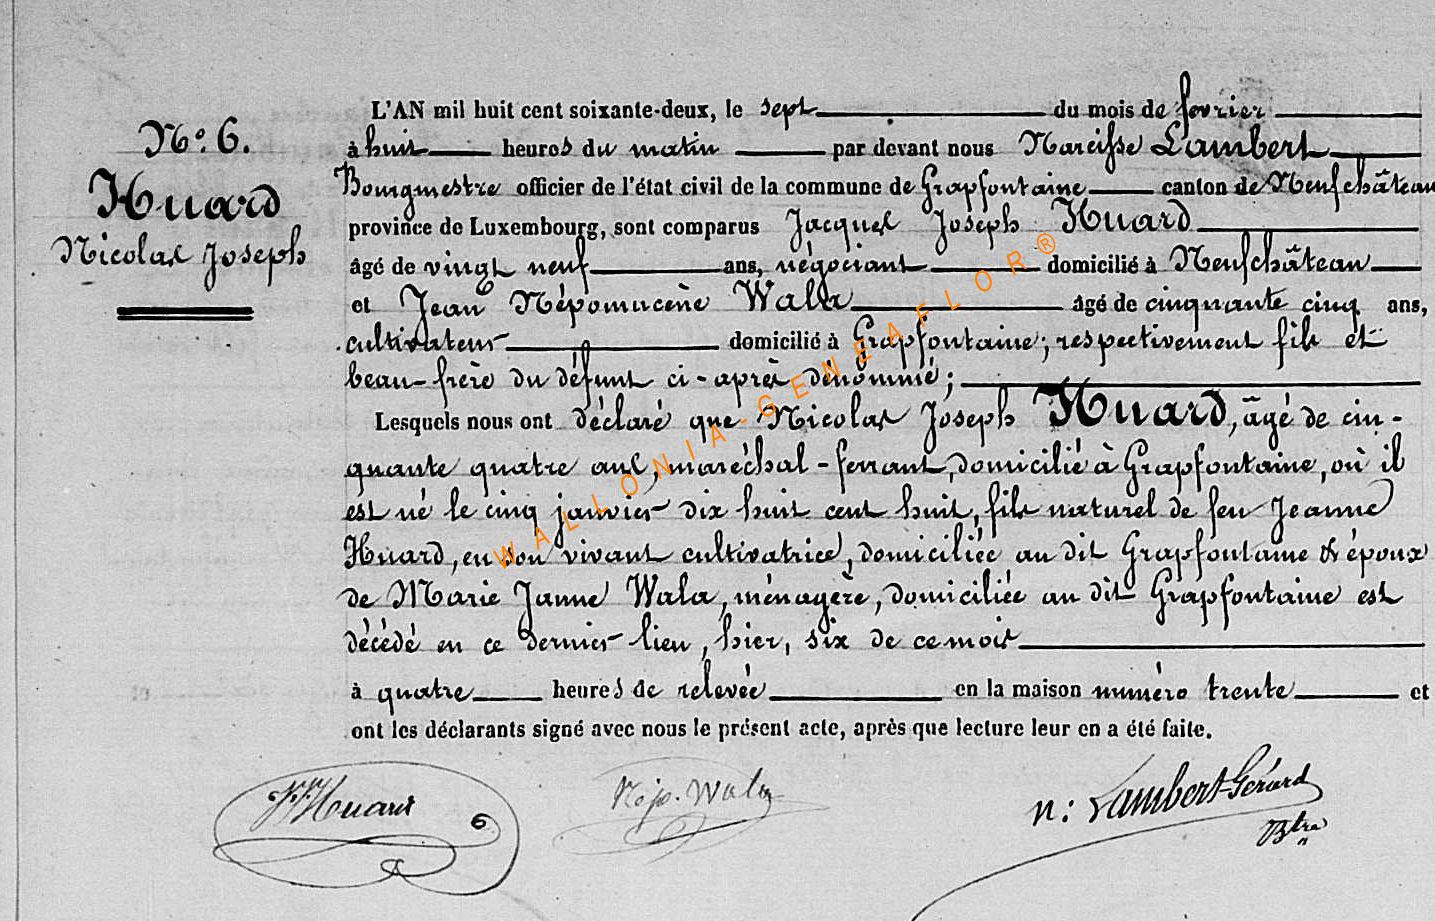 N.o 6.
Huard
Nicolas Joseph
L'AN mil huit cent soixante-deux, le sept du mois de fevrier
à huit heures du matin par devant nous Narcisse Lambert
Bourgmestre officier de l'état civil de la commune de Grapfontaine canton de Neufchâteau
province de Luxembourg, sont comparus Jacques Joseph Huard
âgé de vingt neuf ans, négociant domicilié à Neufchâteau
et Jean Népomucène Wala âgé de cinquante cinq ans,
cultivateur domicilié à Grapfontaine; respectivement fils et
beau-frère du défunt ci-après dénommé;
Lesquels nous ont déclaré que Nicolas Joseph Huard, âgé de cin-
quante quatre ans, maréchal-ferrant, domicilié à Grapfontaine, où il
est né le cinq janvier dix huit cent huit, fils naturel de feu Jeanne
Huard, en son vivant cultivatrice, domiciliée au dit Grapfontaine & époux
de Marie Janne Wala, ménagère, domiciliée au dit Grapfontaine est
décédé en ce dernier lieu, hier, six de ce mois
à quatre heures de relevée en la maison numéro trente et
ont les déclarants signé avec nous le présent acte, après que lecture leur en a été faite.
J J Huard
Nép. Wala
n: Lambert-Gérard
Btre
WALLONIA-GENEAFLOR®